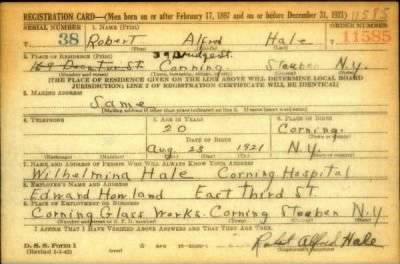 REGISTRATION CARD—(Men born on or after February 17, 1897 and on or before December 31, 1921)
SERIAL NUMBER 1. NAME (Print) ORDER NUMBER
T 38 Robert Alfred Hale T 11585
(First) (Middle) (Last)
2. PLACE OF RESIDENCE (Print)
Corning Steuben N.Y.
(Number and street) (Town, township, village, or city) (County) (State)
[THE PLACE OF RESIDENCE GIVEN ON THE LINE ABOVE WILL DETERMINE LOCAL BOARD
JURISDICTION; LINE 2 OF REGISTRATION CERTIFICATE WILL BE IDENTICAL]
3. MAILING ADDRESS
Same
[Mailing address if other than place indicated on line 2. If same insert word same]
4. TELEPHONE 5. AGE IN YEARS 6. PLACE OF BIRTH
20 Corning.
DATE OF BIRTH (Town or county)
Aug 28 1921 N.Y.
(Exchange) (Number) (Mo.) (Day) (Yr.) (State or country)
7. NAME AND ADDRESS OF PERSON WHO WILL ALWAYS KNOW YOUR ADDRESS
Wilhelmina Hale Corning Hospital
8. EMPLOYER'S NAME AND ADDRESS
Edward Howland East Third St
9. PLACE OF EMPLOYMENT OR BUSINESS
Corning Glass Works. Corning Steuben N.Y
(Number and street or R. F. D. number) (Town) (County) (State)
I AFFIRM THAT I HAVE VERIFIED ABOVE ANSWERS AND THAT THEY ARE TRUE.
D. S. S. Form 1
(Revised 1-1-42) Robert Alfred Hale
(Registrant's signature)